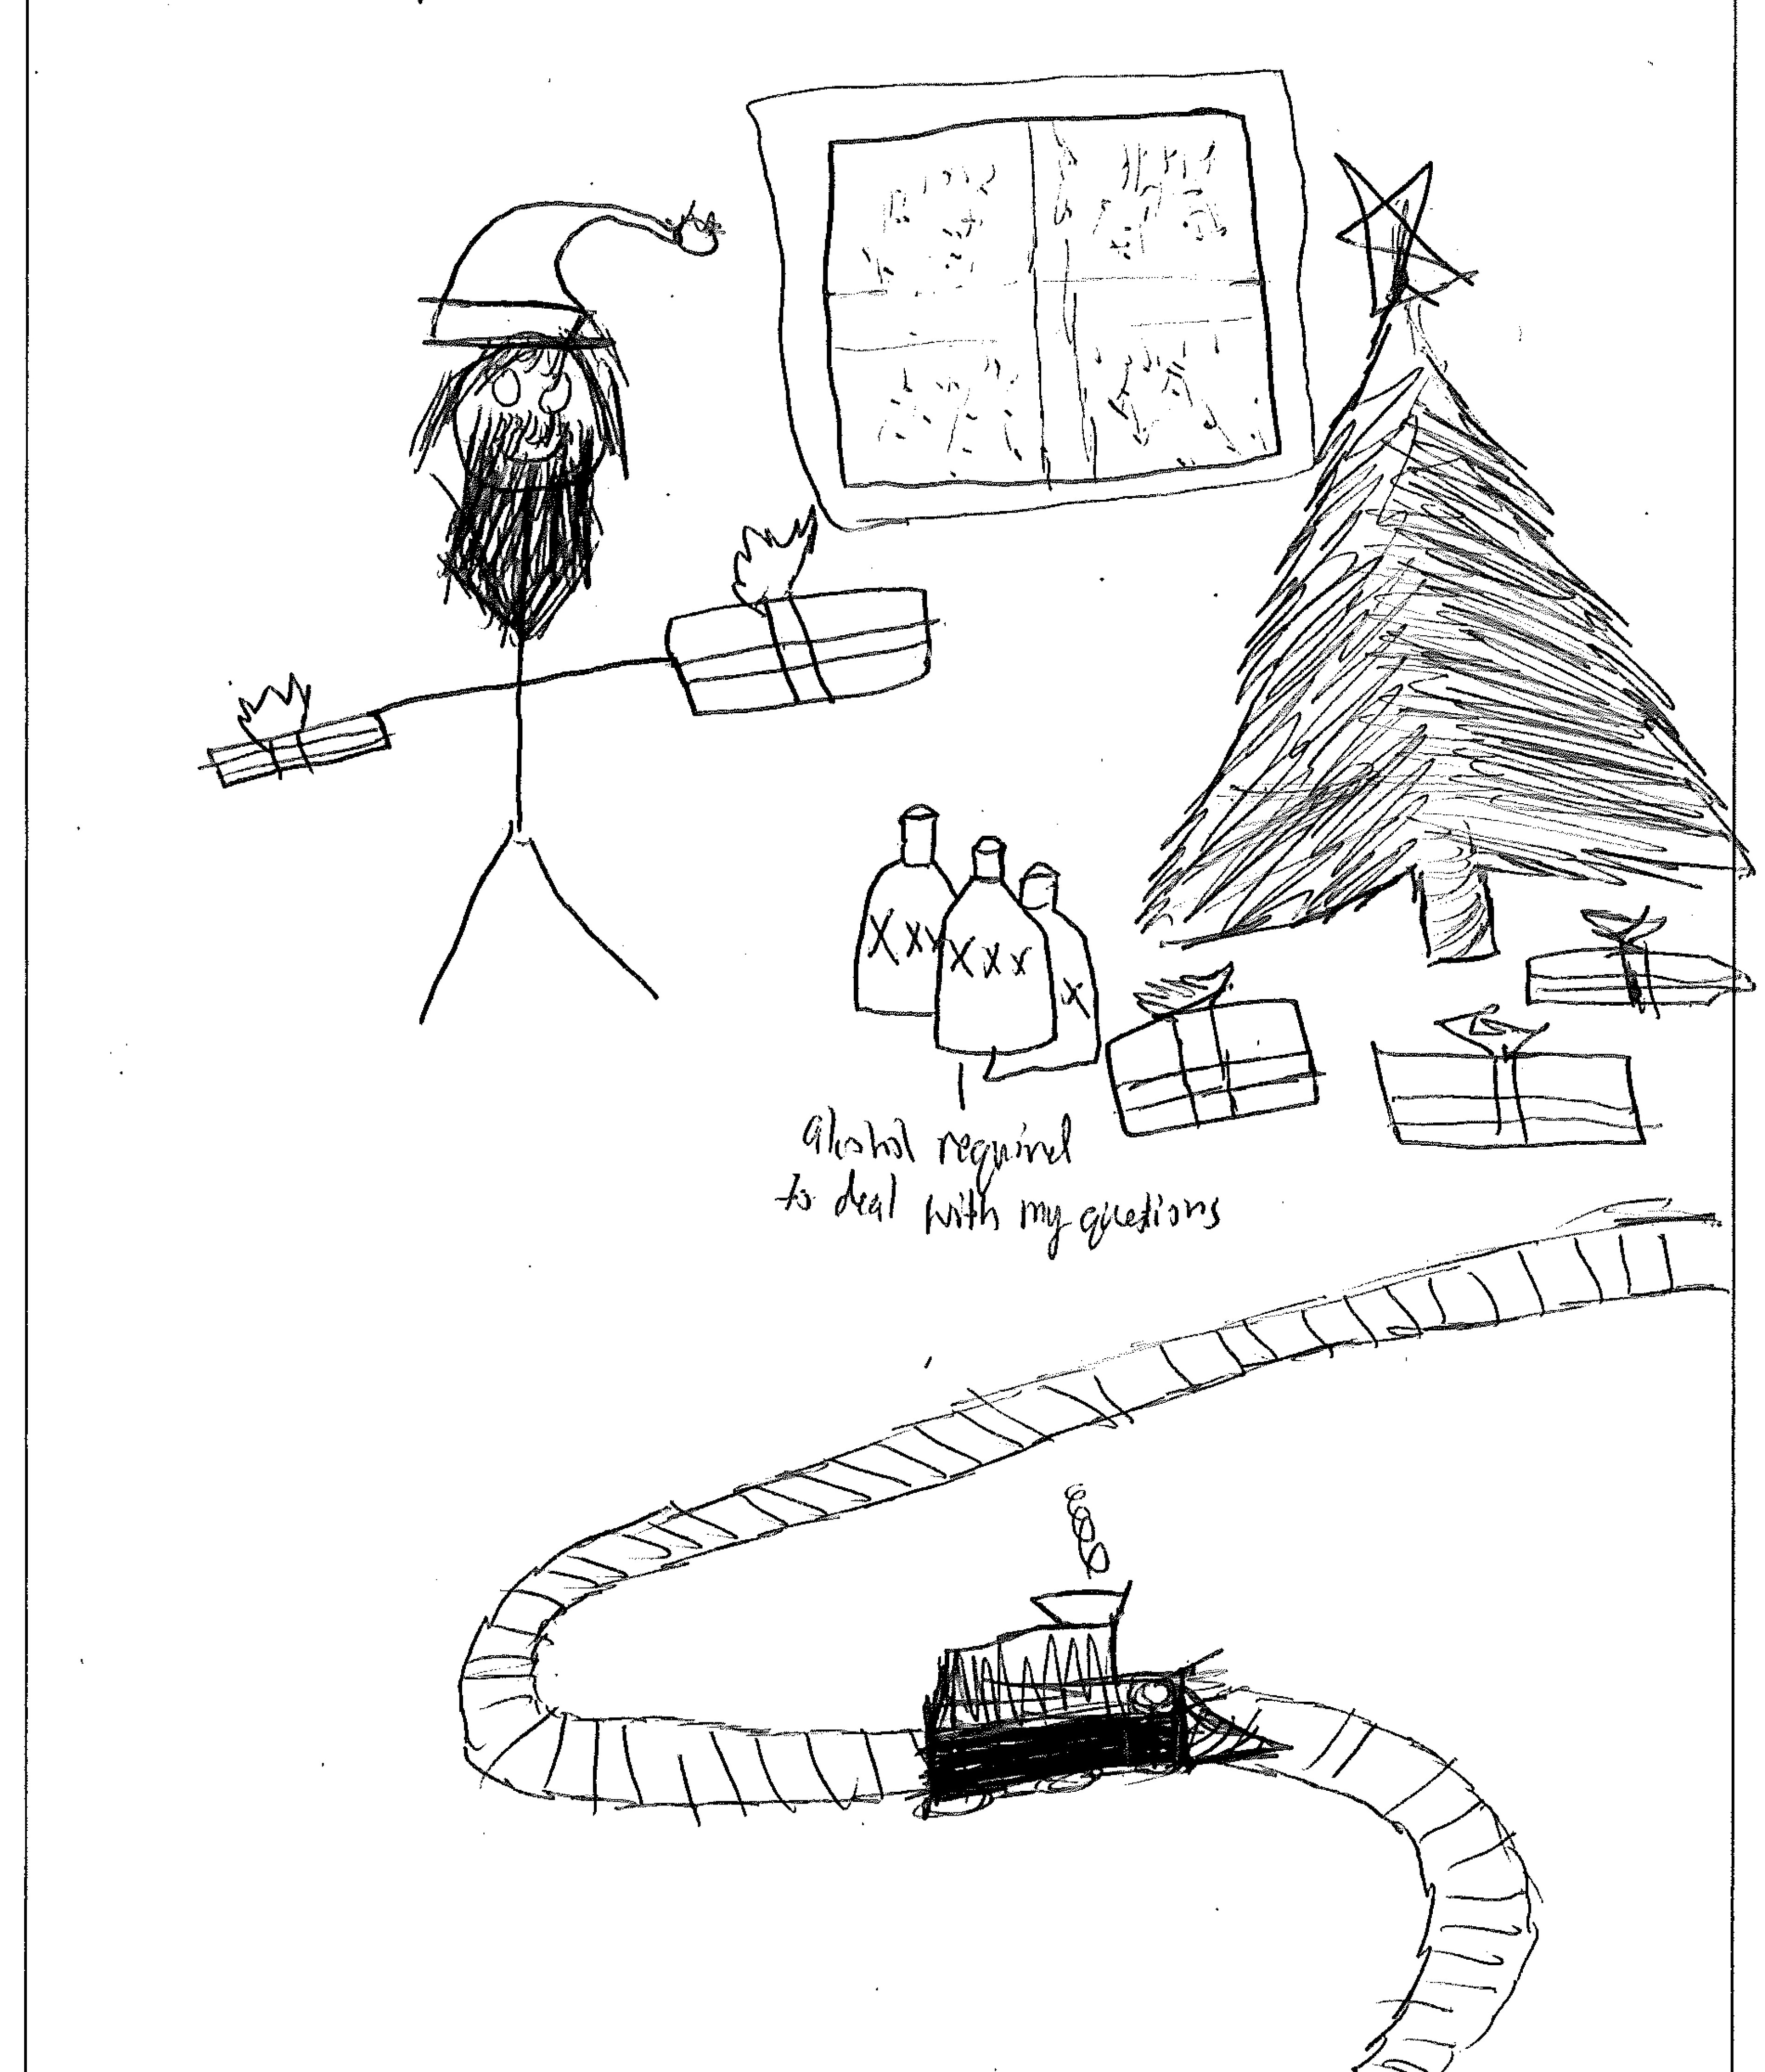 XXX
XXX
X
alcohol required
to deal with my questions